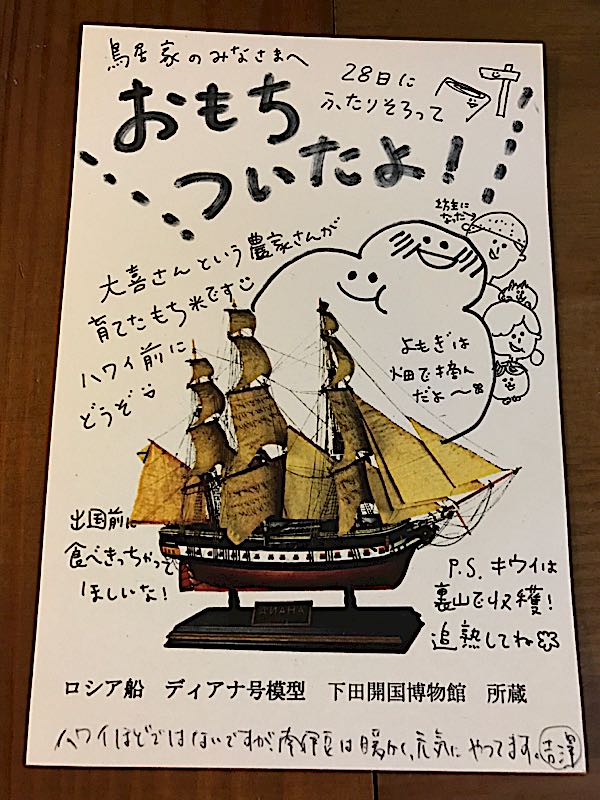 鳥居家のみなさまへ
28日に
ふたりそろって
おもち
ついたよ！
坊主に
なった→
大喜さんという農家さんが
育てたもち米です
ハワイ前に
どうぞ
よもぎは
畑で摘ん
だよ〜
出国前に
食べきっちゃって
ほしいな！
P.S. キウイは
裏山で収穫！
追熟してね
ДИАНА
ロシア船　ディアナ号模型　下田開国博物館　所蔵
ハワイほどではないですが、南伊豆は暖かく、元気にやってます。吉澤